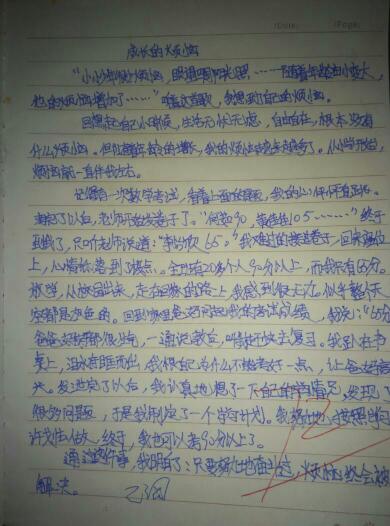 Date: Page:
成长的烦恼
"小小少年很少烦恼，眼望四周阳光照……随着年龄由小变大，
他的烦恼增加了……"唱这首歌，我想到了自己的烦恼。
回想起自己小时候，生活无忧无虑，自由自在，根本没有
什么烦恼。但随着年龄的增长，我的烦恼也越来越多了。从小学开始，
烦恼就一直伴我左右。
记得有一次数学考试，看着上面的
了以后，老师开始发卷子了。"90，105……"终于
到我了，只听老师说道："65。"我难过的接过卷子，回到座位
上，心情低落到了极点。全班有20多个人90分以上，而我只有65分。
放学，从校园出来，走在回家的路上我感到很无力。似乎整个天
空都是灰色的。回到家里爸爸问起我的考试成绩，我说："65分"
爸爸好像很生气，一通说教后，叫我赶快去复习。我趴在书
桌上，泪水夺眶而出，我恨自己为什么不能考好一点，让爸爸
以后，我认真地想了一下自己的学习情况，发现了
很多问题，于是我制定了一个学习计划。我努力地按照
计划去做，终于，我也可以考90分以上了。
通过这件事，我明白了：只要努力地面对，烦恼终会被
解决。